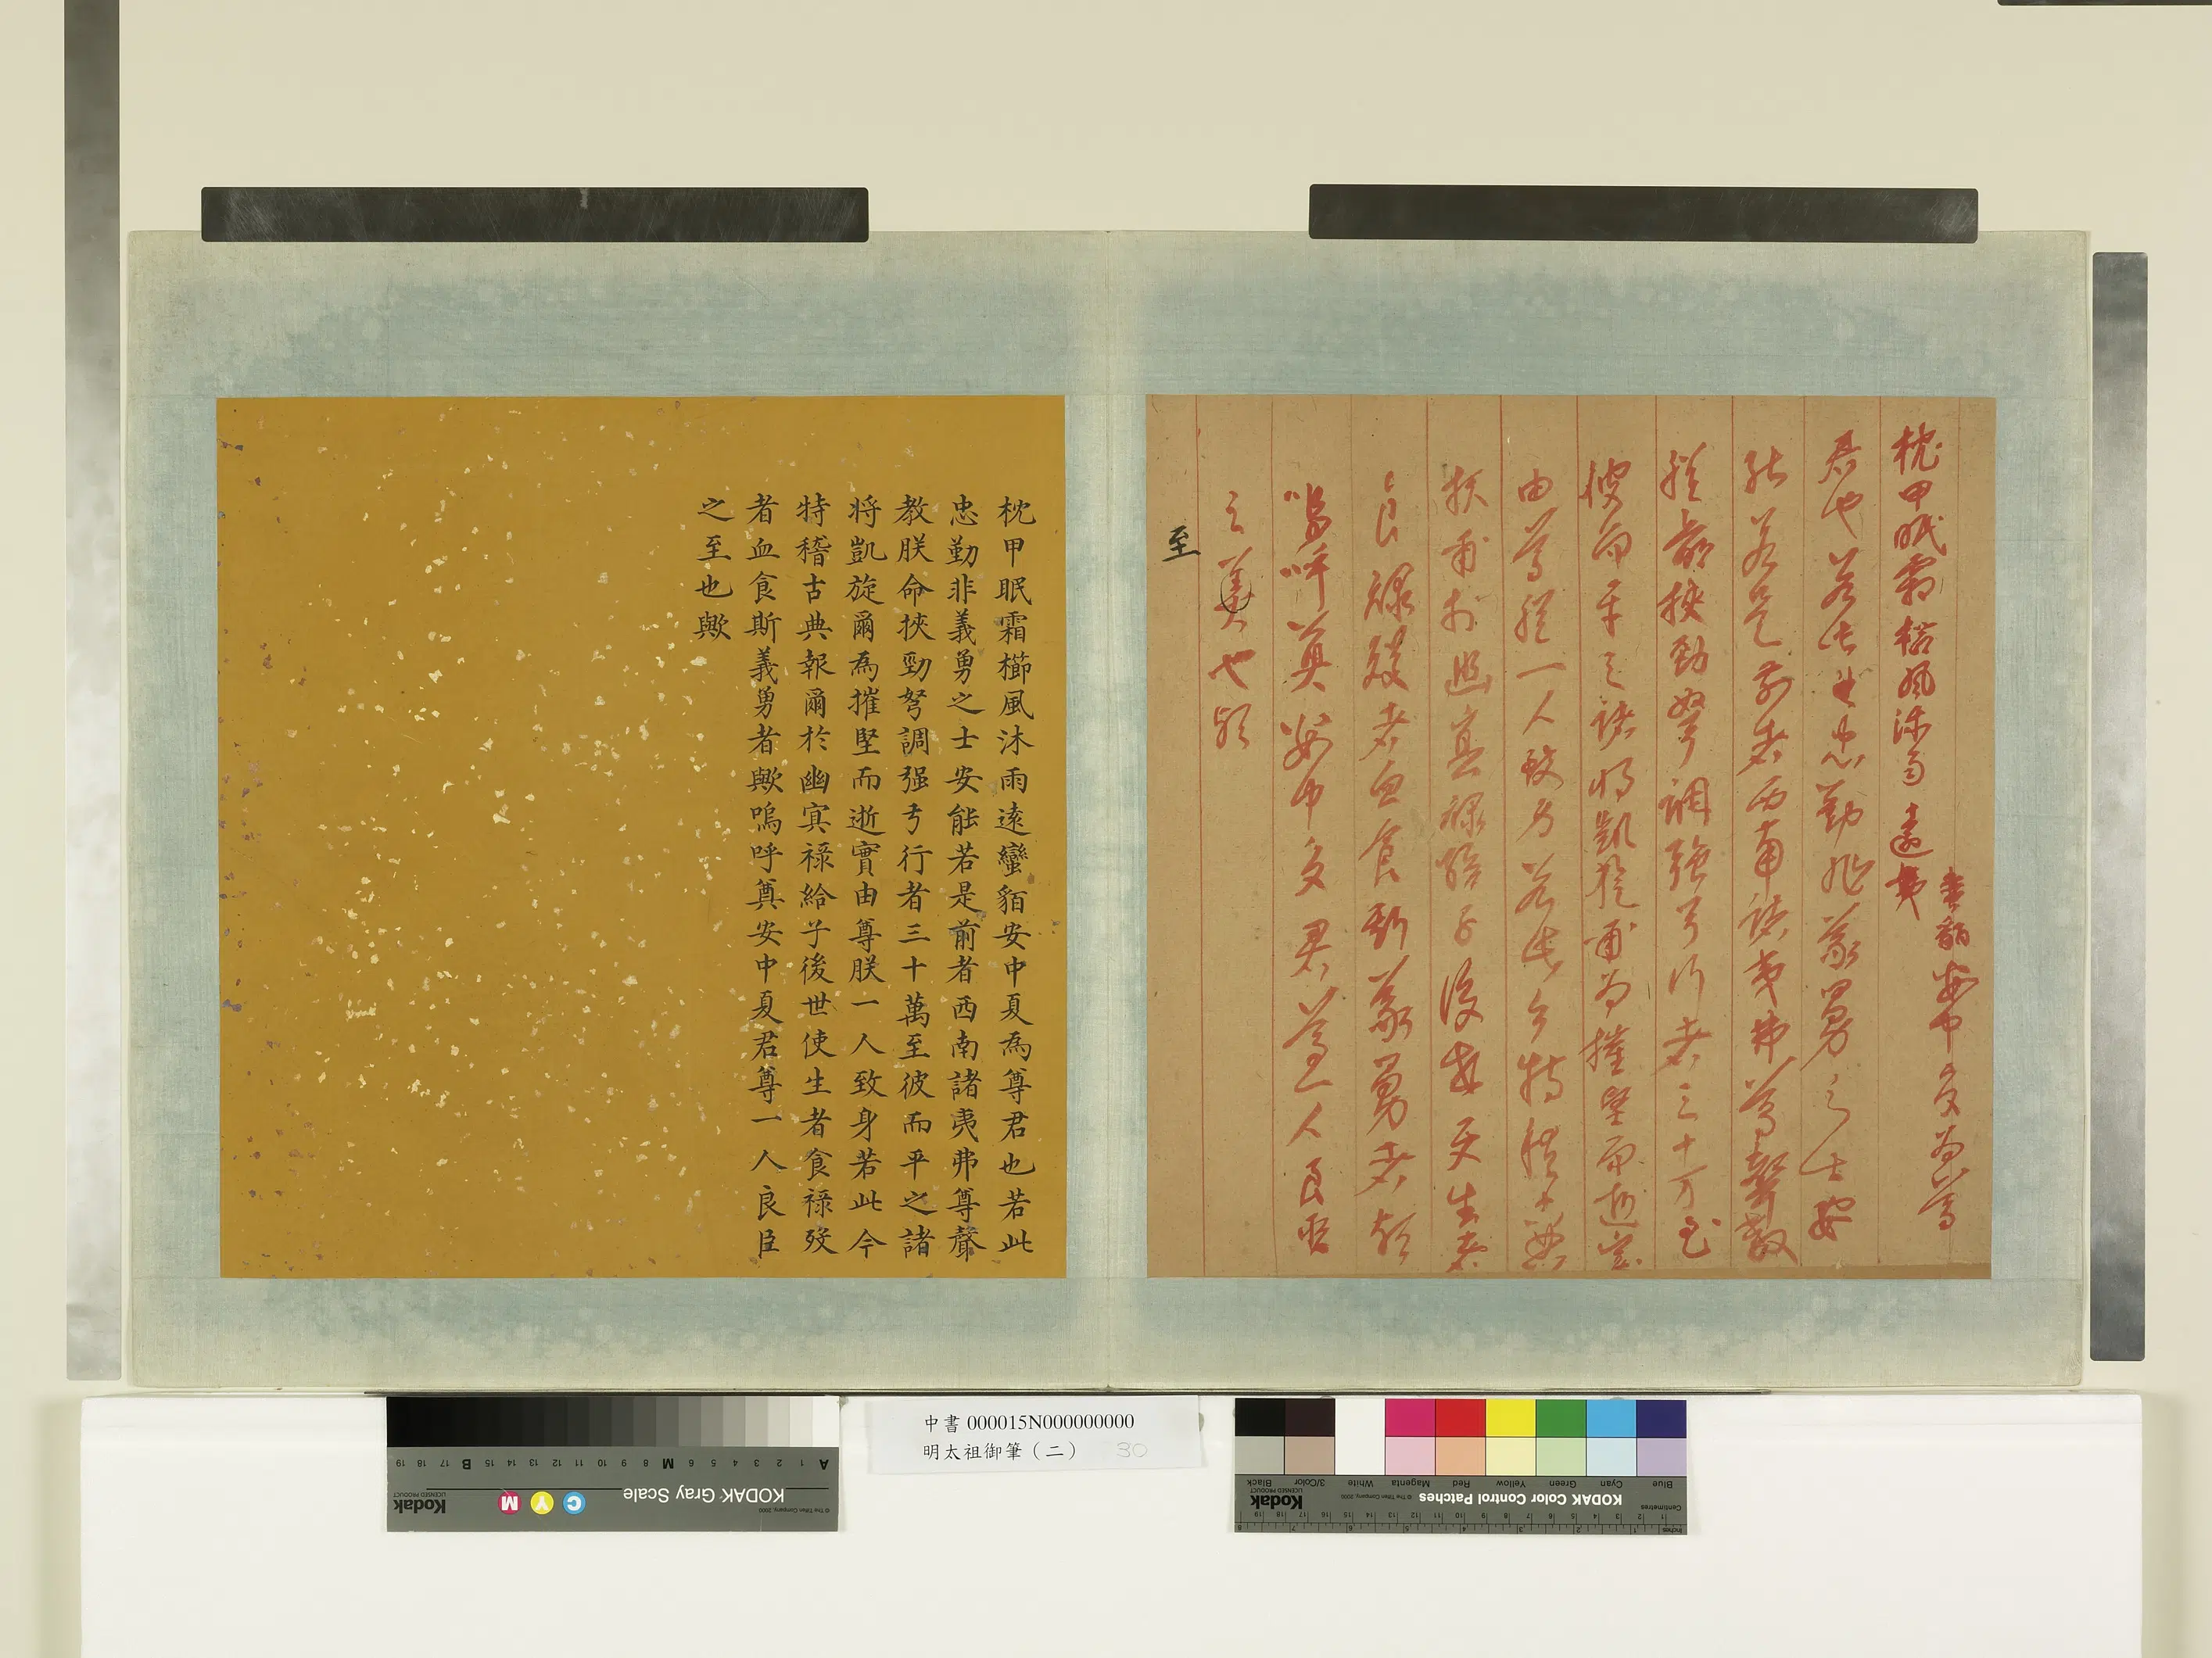 枕甲眠霜櫛風沐雨遠夷
蠻貊安中夏為尊
君也若此忠勤非義勇之士安
能若是前者西南諸夷弗尊聲教
朕命挾勁弩調強弓行者三十万至
彼而平之諸將凱旋爾為摧堅而逝實
由尊朕一人致身若此今特稽古典
報爾於幽冥祿給子後世使生者
食祿歿者血食斯義勇者歟
嗚呼奠安中夏君尊一人良臣
之美也歟
至
枕甲眠霜櫛風沐雨遠蠻貊安中夏為尊君也若此
忠勤非義勇之士安能若是前者西南諸夷弗尊聲
教朕命挾勁弩調强弓行者三十萬至彼而平之諸
将凱旋爾為摧堅而逝實由尊朕一人致身若此今
特稽古典報爾於幽冥祿給子後世使生者食祿歿
者血食斯義勇者歟嗚呼奠安中夏君尊一人良臣
之至也歟
中書 000015N000000000
明太祖御筆（二） 30
KODAK Gray Scale
Kodak
LICENSED PRODUCT
© The Tiffen Company, 2000
C Y M
A 1 2 3 4 5 6 M 8 9 10 11 12 13 14 15 B 17 18 19
KODAK Color Control Patches
Kodak
LICENSED PRODUCT
© The Tiffen Company, 2000
Blue Cyan Green Yellow Red Magenta White 3/Color Black
Centimetres
Inches